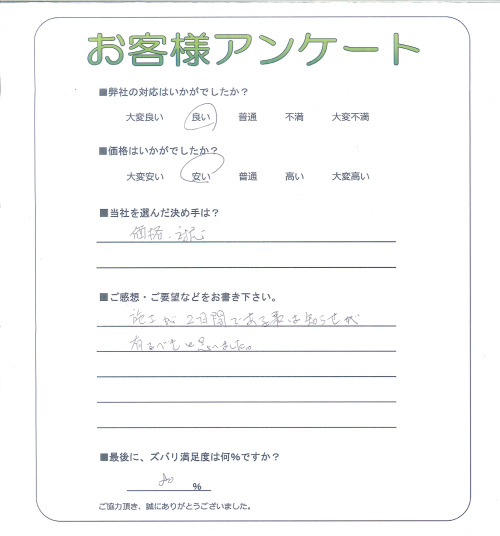 お客様アンケート
■弊社の対応はいかがでしたか？
大変良い 良い 普通 不満 大変不満
■価格はいかがでしたか？
大変安い 安い 普通 高い 大変高い
■当社を選んだ決め手は？
価格、対応
■ご感想・ご要望などをお書き下さい。
施工が2日間である事は知らせが
有るべきと思いました。
■最後に、ズバリ満足度は何%ですか？
80 %
ご協力頂き、誠にありがとうございました。